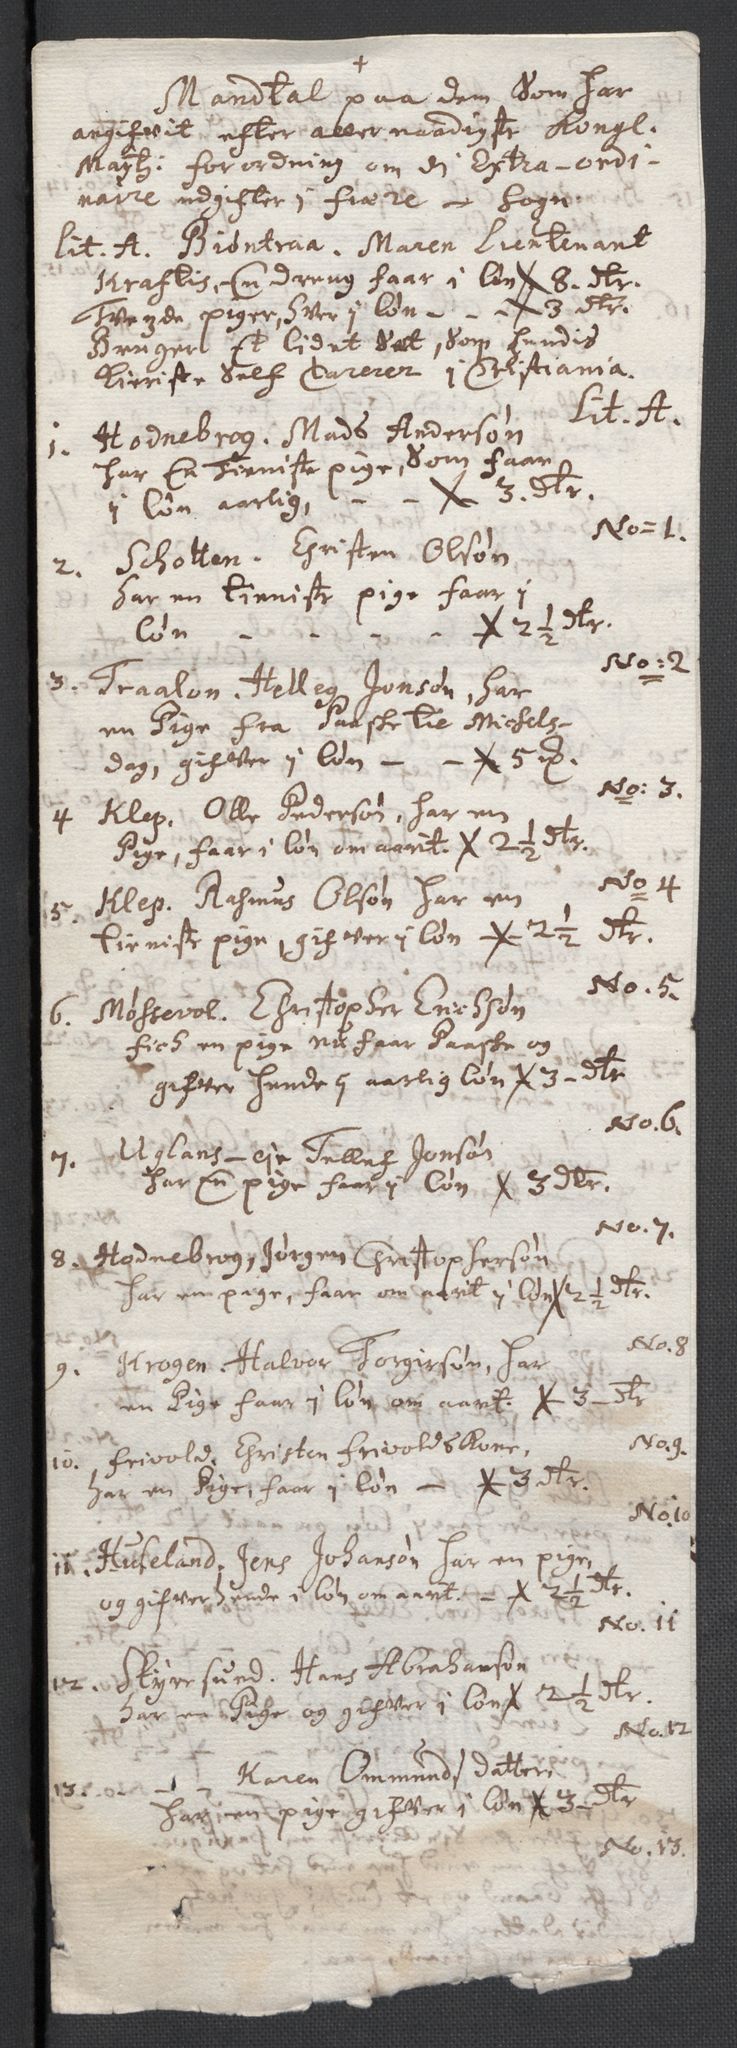 +
Mandtal paa dem Som har
angifvit efter allernaadigste Kongl.
Maytz: forordning om di Extra-ordi-
naire udgifter i fiære - Sogn
Lit. A. Biøntraa. Maren Lieutenant
Kraftis, En dreng faar i løn X 8. dtr.
Tvende piger, hver i løn - - - X 3 dtr.
Bruger Et lidet Sæt, Som hendis
Self i Cristiania.
Lit. A.
1. Hodnebrog. Mads Andersøn
har En tieniste pige, Som faar
i løn aarlig, - - X 3. dtr.
No = 1.
2. Schotten. Christen Olsøn
har en tieniste pige faar i
løn - - - - X 2½ dtr.
No: 2
3. Traalon. Helleg Jonsøn, har
en Pige fra Paaske til Michels-
dag, gifver i løn - - X 5
No: 3.
4 Klep. Olle Pedersøn, har en
Pige, faar i løn om aarit. X 2½ dtr.
No 4
5. Klep. Rasmus Olsøn har en
tieniste pige, gifver i løn - X 2½ dtr.
No. 5.
6. Møssevol. Christopher Erichsøn
fich en pige nu faar Paaske og
gifver hende i aarlig løn X 3 - dtr
No. 6.
7. Uglans-eje Tellef Jonsøn
har En pige faar i løn X 3 dtr.
No. 7.
8. Hodnebrog, Jørgen Christophersøn
har en page, faar om aarit i løn X 2½ dtr.
No. 8
9. Krogen. Halvor Torgirsøn, har
en Pige faar i løn om aarit. X 3 - dtr
No. 9.
10. frivold. Christen frivolds Kone,
har en Pige, faar i løn - X 3 dtr.
No. 10
11. Huseland. Jens Johansøn har en pige,
og gifver hende i løn om aarit. - X 2½ dtr.
No. 11
12. Skyresund. Hans Abrahamsøn
har en Pige og gifver i løn X 2½ dtr.
No. 12
13. - - - Karen Ommunds datter
har een pige gifver i løn X 3 - dtr
No. 13.